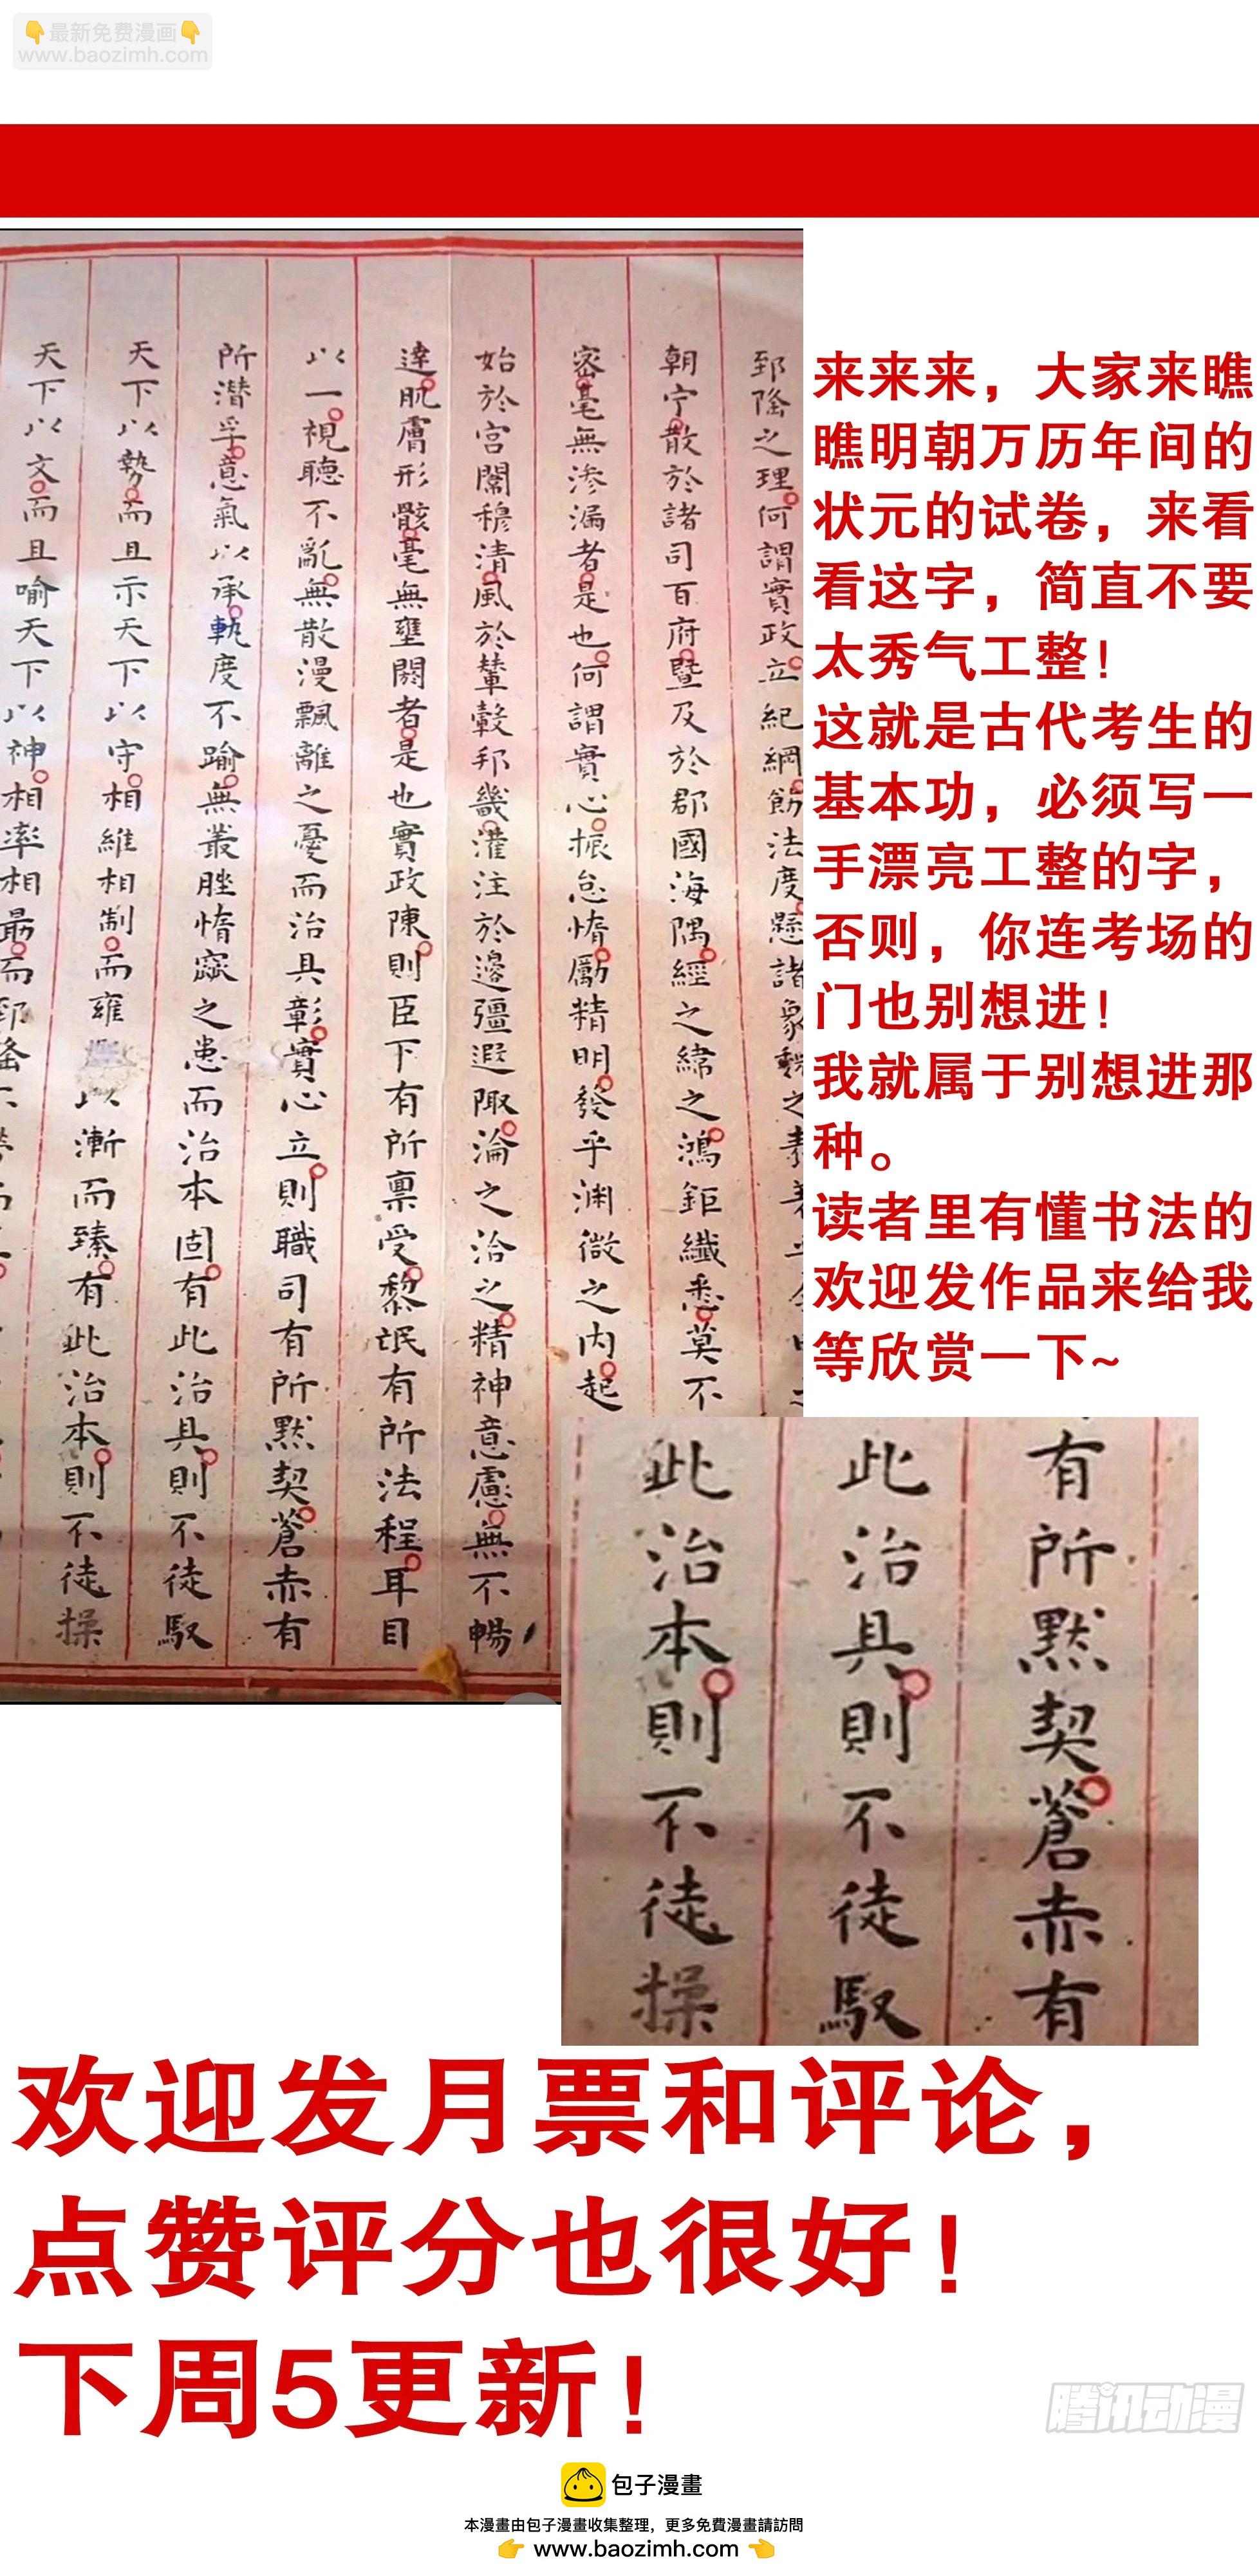 👇最新免费漫画👇
www.baozimh.com
来来来，大家来瞧
瞧明朝万历年间的
状元的试卷，来看
看这字，简直不要
太秀气工整！
这就是古代考生的
基本功，必须写一
手漂亮工整的字，
否则，你连考场的
门也别想进！
我就属于别想进那
种。
读者里有懂书法的
欢迎发作品来给我
等欣赏一下~
郅隆之理何謂實政立紀綱飭法度懸諸象魏之表著
朝宁散於諸司百府暨及於郡國海隅經之緯之鴻鉅纖悉莫不
密毫無滲漏者是也何謂實心振怠惰勵精明發乎渊微之内起
始於宮闈穆清風於輦轂邦畿灌注於邊疆遐陬淪之洽之精神意慮無不暢
達肌膚形骸毫無壅閼者是也實政陳則臣下有所禀受黎氓有所法程耳目
以一視聽不亂無散漫飄離之憂而治具彰實心立則職司有所默契蒼赤有
所潛孚意氣以承軌度不踰無叢脞惰窳之患而治本固有此治具則不徒馭
天下以勢而且示天下以守相維相制而雍以漸而臻有此治本則不徒操
天下以文而且喻天下以神相率相最而郅
有所默契蒼赤有
此治具則不徒馭
此治本則不徒操
欢迎发月票和评论，
点赞评分也很好！
下周5更新！
腾讯动漫
包子漫畫
本漫畫由包子漫畫收集整理，更多免費漫畫請訪問
👉 www.baozimh.com 👈